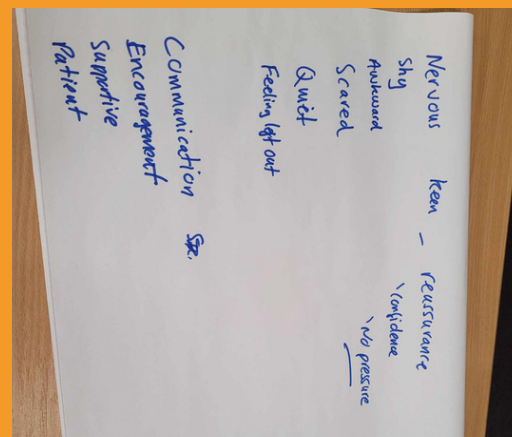 Nervous keen - reassurance
Shy 'confidence
Awkward 'No pressure
Scared
Quiet
Feeling left out
Communication
Encouragement
Supportive
Patient